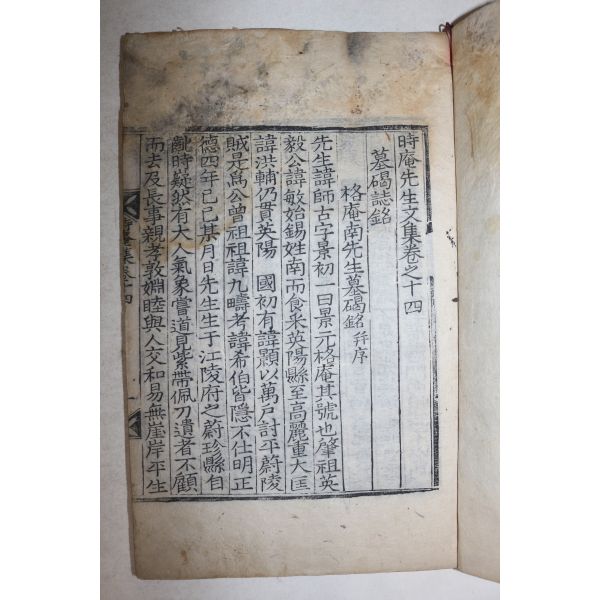 時庵先生文集卷之十四
墓碣誌銘
格庵南先生墓碣銘 幷序
先生諱師古字景初一曰景元格庵其號也肇祖英
毅公諱敏始錫姓南而食采英陽縣至高麗重大匡
諱洪輔仍貫英陽 國初有諱顥以萬戶討平蔚陵
賊是爲公曾祖祖諱九疇考諱希伯皆隱不仕明正
德四年己巳某月日先生生于江陵府之蔚珍縣自
齠時嶷然有大人氣象嘗道見紫帶佩刀遺者不顧
而去及長事親孝敦婣睦與人交和易無崖岸平生
時庵集卷十四
一